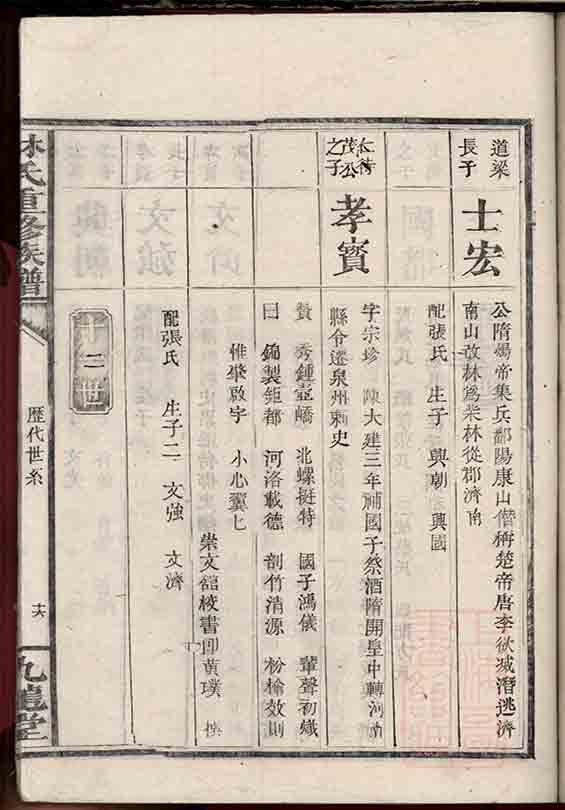 道梁
長子
士宏
公隋煬帝集兵鄱陽康山僭稱楚帝唐李欲滅潛逃濟
南山改林爲柴林從郡濟南
配張氏　生子　興朝　興國
茂公
之子
孝寶
字宗珍　陳大建三年補國子祭酒隋開皇中轉河南
縣令遷泉州刺史
贊　秀鍾壺嶠　北螺挺特　國子鴻儀　蜚聲初熾
曰　錦製鉅都　河洛載德　剖竹清源　枌榆效則
惟肇啟宇　小心翼匕
崇文館校書郎黃璞　撰
配張氏　生子二　文強　文濟
十二世
林氏重修族譜
歷代世系
九龍堂